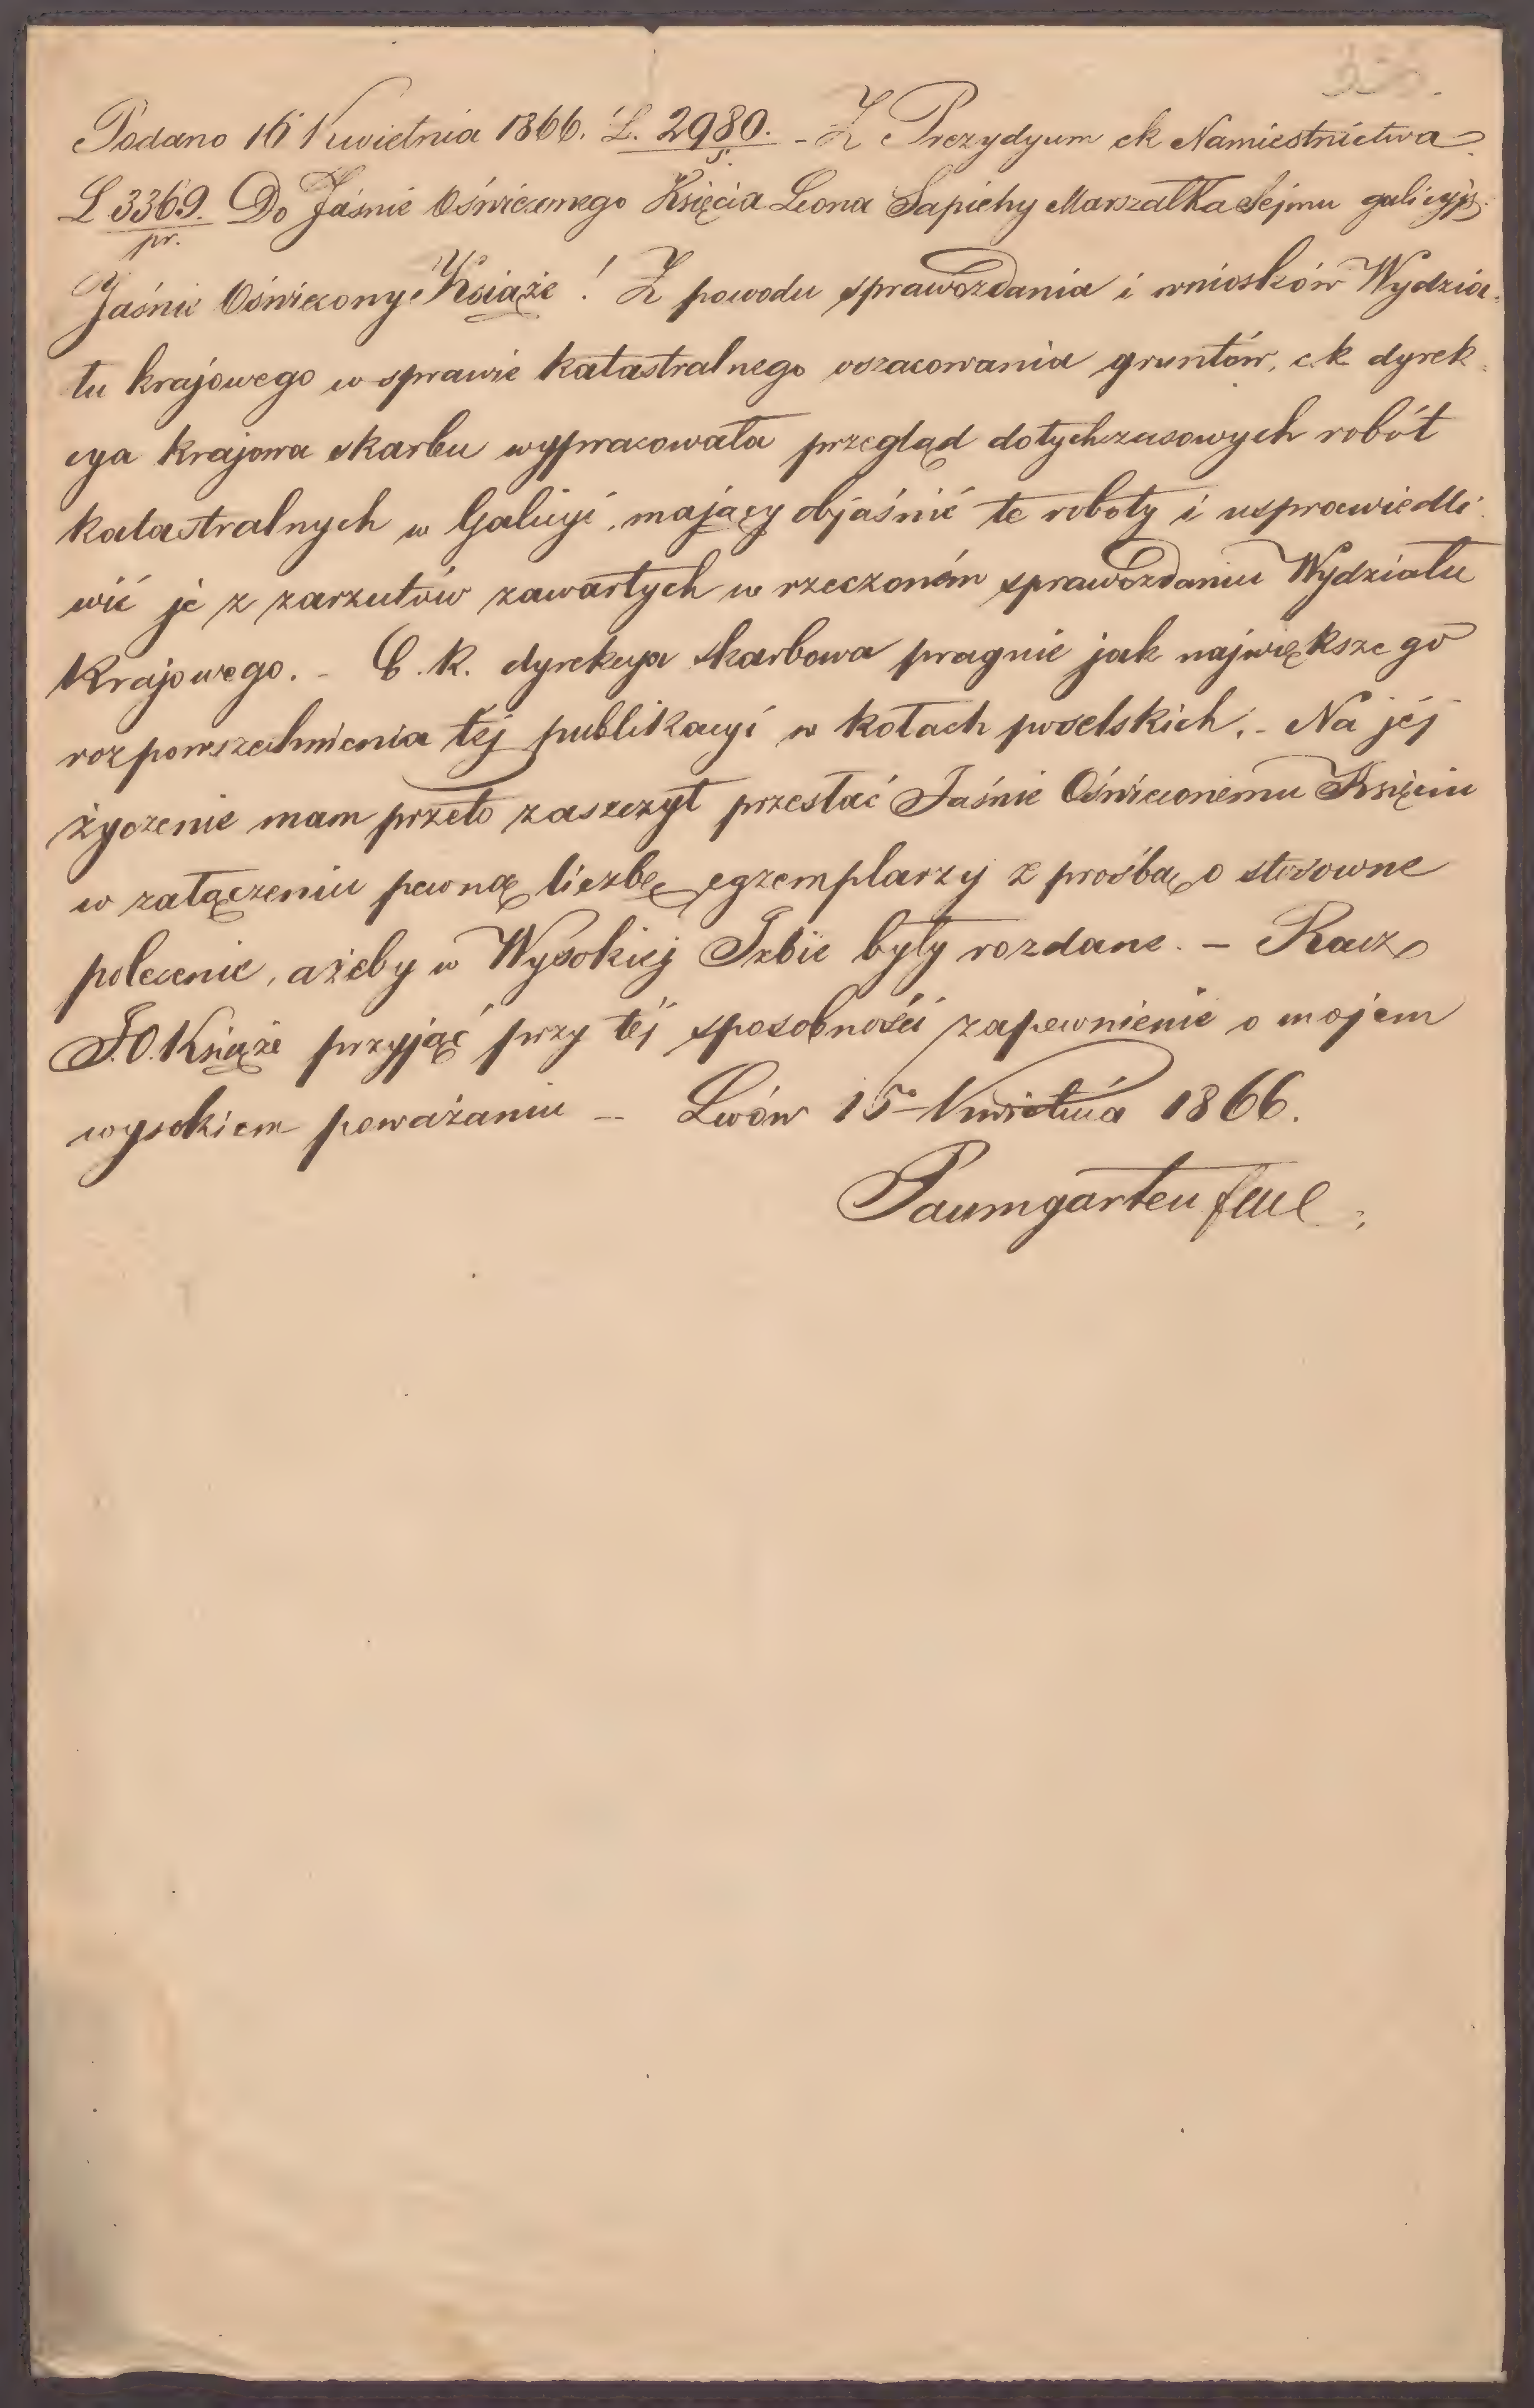 Podano 16 Kwietnia 1866. L. 2980. - Z Prezydyum ck Namiestnictwa
s.
L 3369. Do Jaśnie Oświeconego Księcia Leona Sapiehy Marszałka Sejmu galicyjs.
pr.
Jaśnie Oświecony Książe! Z powodu sprawozdania i wniosków Wydzia-
łu krajowego w sprawie katastralnego oszacowania gruntów, c.k. dyrek-
cya krajowa skarbu wypracowała przegląd dotychczasowych robót
katastralnych w Galicyi, mający objaśnić te roboty i usprawiedli-
wić je z zarzutów zawartych w rzeczoném sprawozdaniu Wydziału
Krajowego. - C. k. dyrekcya skarbowa pragnie jak największego
rozpowszechnienia téj publikacyi w kołach poselskich. - Na jéj
życzenie mam przeto zaszczyt przesłać Jaśnie Oświeconemu Księciu
w załączeniu pewną liczbę egzemplarzy z prośbą o stosowne
polecenie, ażeby w Wysokiej Izbie były rozdane. - Racz
J.O. Książe przyjąć przy téj sposobności zapewnienie o mojem
wysokiem poważaniu - Lwów 15 Kwietnia 1866.
Paumgarten